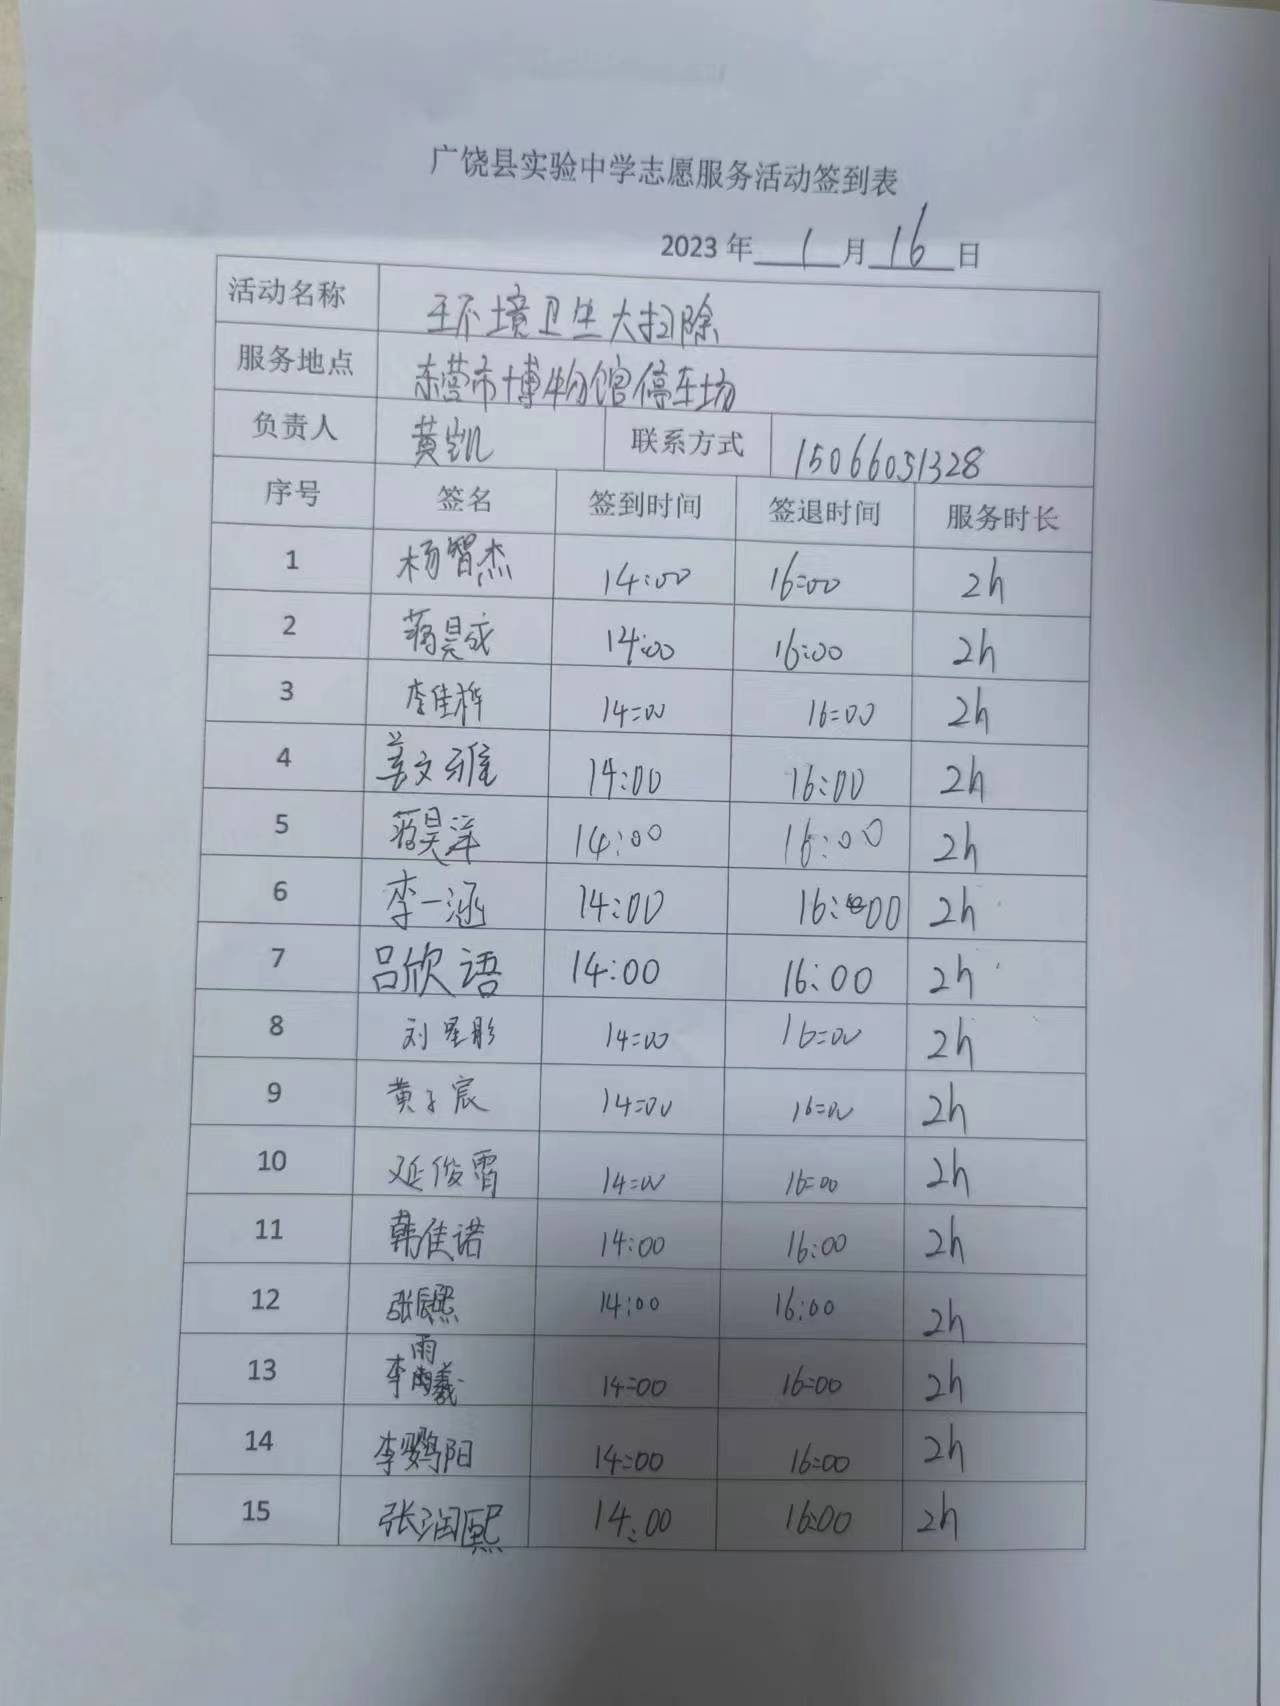 广饶县实验中学志愿服务活动签到表
2023 年 1 月 16 日
活动名称 环境卫生大扫除
服务地点 东营市博物馆停车场
负责人 黄凯 联系方式 15066051328
序号 签名 签到时间 签退时间 服务时长
1 杨智杰 14:00 16:00 2h
2 蒋昊成 14:00 16:00 2h
3 李佳桦 14:00 16:00 2h
4 姜文雅 14:00 16:00 2h
5 蒋昊洋 14:00 16:00 2h
6 李一涵 14:00 16:00 2h
7 吕欣语 14:00 16:00 2h
8 刘星彤 14:00 16:00 2h
9 黄子宸 14:00 16:00 2h
10 延俊霄 14:00 16:00 2h
11 韩佳诺 14:00 16:00 2h
12 张宸熙 14:00 16:00 2h
13 李雨羲 14:00 16:00 2h
14 14:00 16:00 2h
15 张润熙 14:00 16:00 2h